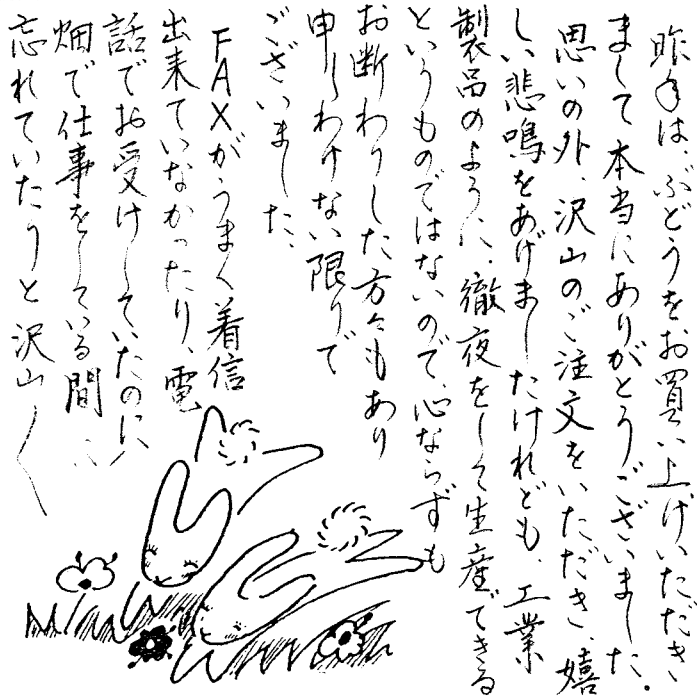 昨年は、ぶどうをお買い上げいただき
まして本当にありがとうございました。
思いの外、沢山のご注文をいただき、嬉
しい悲鳴をあげましたけれども、工業
製品のように、徹夜をして生産できる
というものではないので、心ならずも
お断わりした方々もあり
申しわけない限りで
ございました、
FAXがうまく着信
出来ていなかったり、電
話でお受けしていたのに
畑で仕事をしている間に
忘れていたりと沢山〱